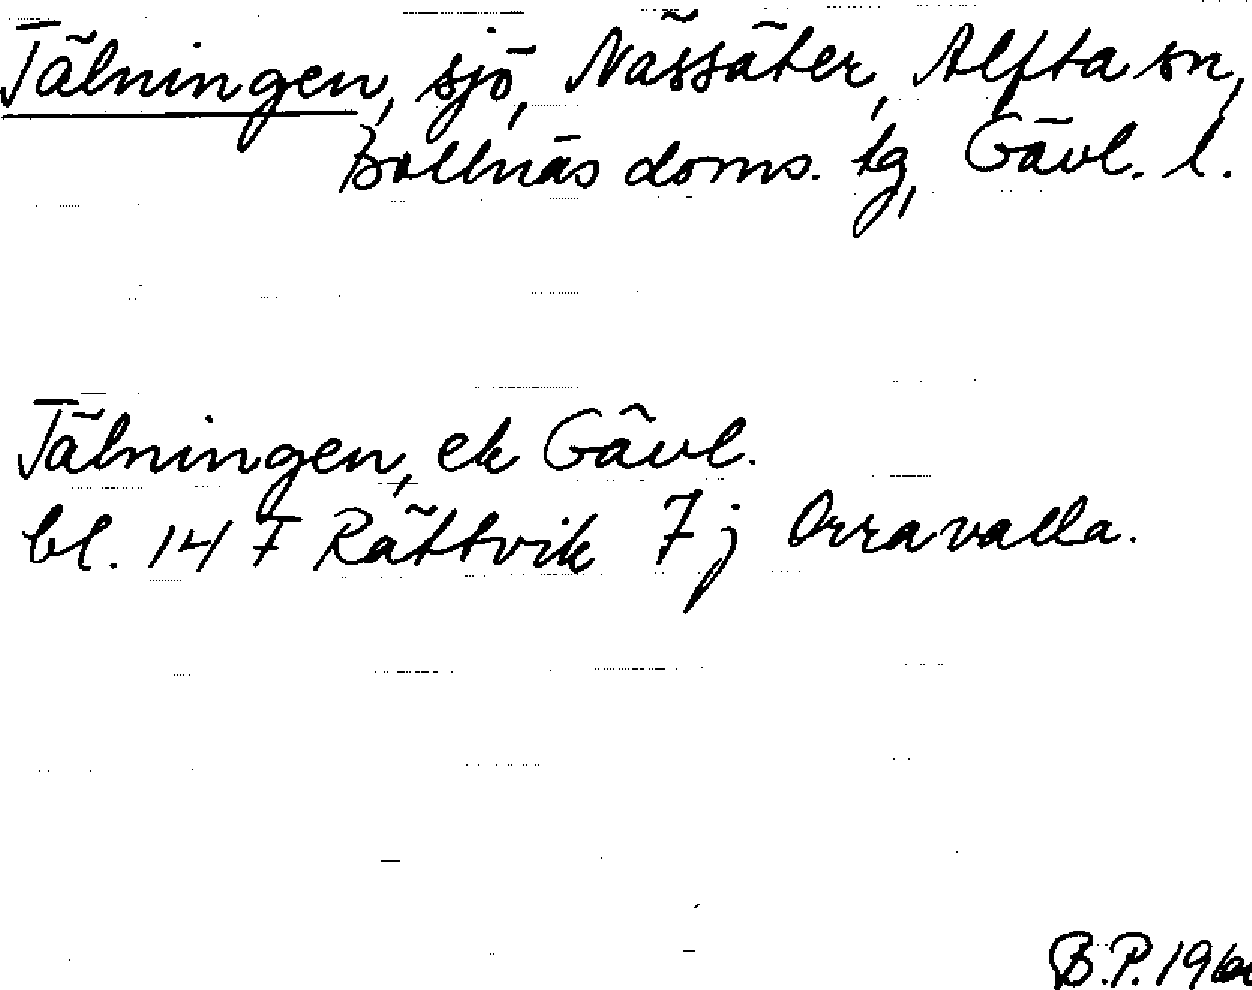 Tälningen, sjö, Nässäter, Alfta sn,
Bollnäs doms. tg, Gävl. l.
Tälningen, ek Gävl.
bl. 147 Rättvik 7j Orravalla.
B.P. 1960